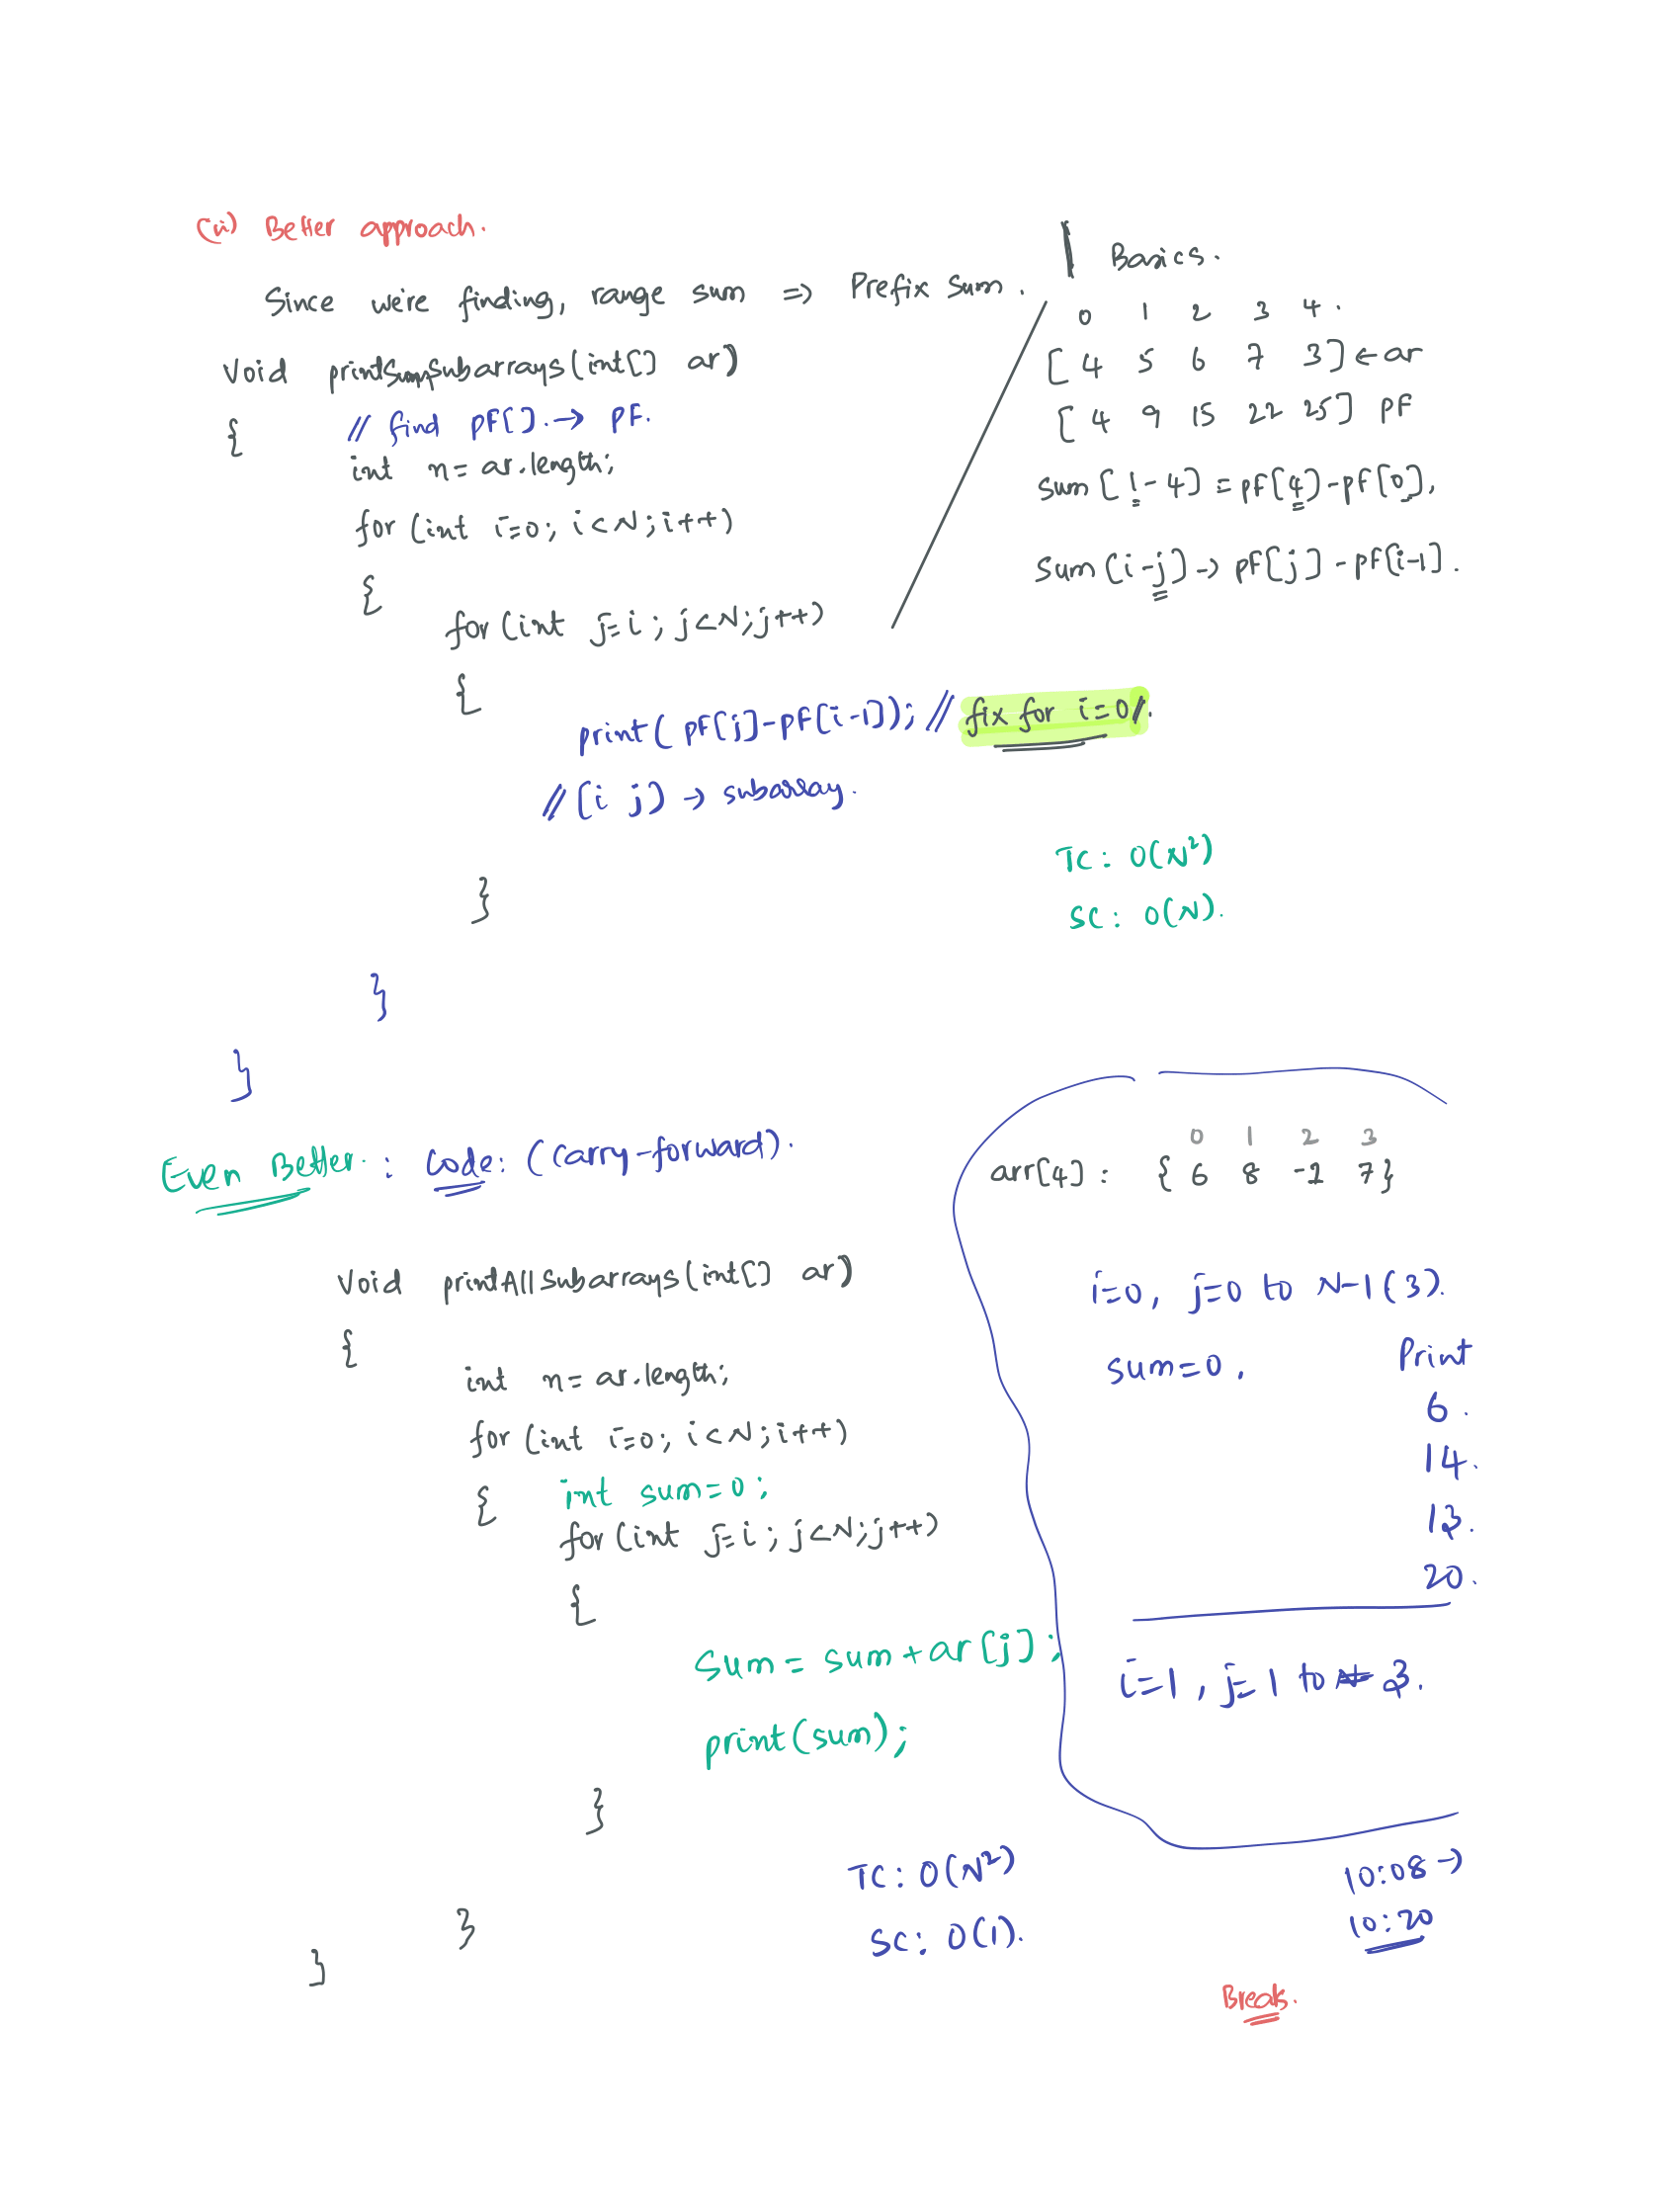 (ii) Better approach.
Since we're finding, range sum => Prefix Sum.
Void printSumSubarrays(int[] ar)
{
// find pf[]. → pf.
int n= ar.length;
for (int i=0; i<N; i++)
{
for (int j=i; j<N; j++)
{
print( pf[j]-pf[i-1]); // fix for i=0//.
// [i j] → subarray.
}
}
}
Basics.
0 1 2 3 4.
[ 4 5 6 7 3] ← ar
[ 4 9 15 22 25] pf
sum [1-4] = pf[4]-pf[0],
Sum [i-j] → pf[j] - pf[i-1].
TC: O(N²)
SC: O(N).
Even Better. : Code: (Carry-forward).
Void printAllSubarrays(int[] ar)
{
int n= ar.length;
for (int i=0; i<N; i++)
{ int sum=0;
for (int j=i; j<N; j++)
{
Sum = sum+ar[j];
print(sum);
}
}
}
TC: O(N²)
SC: O(1).
0 1 2 3
arr[4] : { 6 8 -2 7}
i=0, j=0 to N-1(3).
sum=0, Print
6.
14.
20.
i=1, j=1 to 3.
10:08 →
10:20
Break.